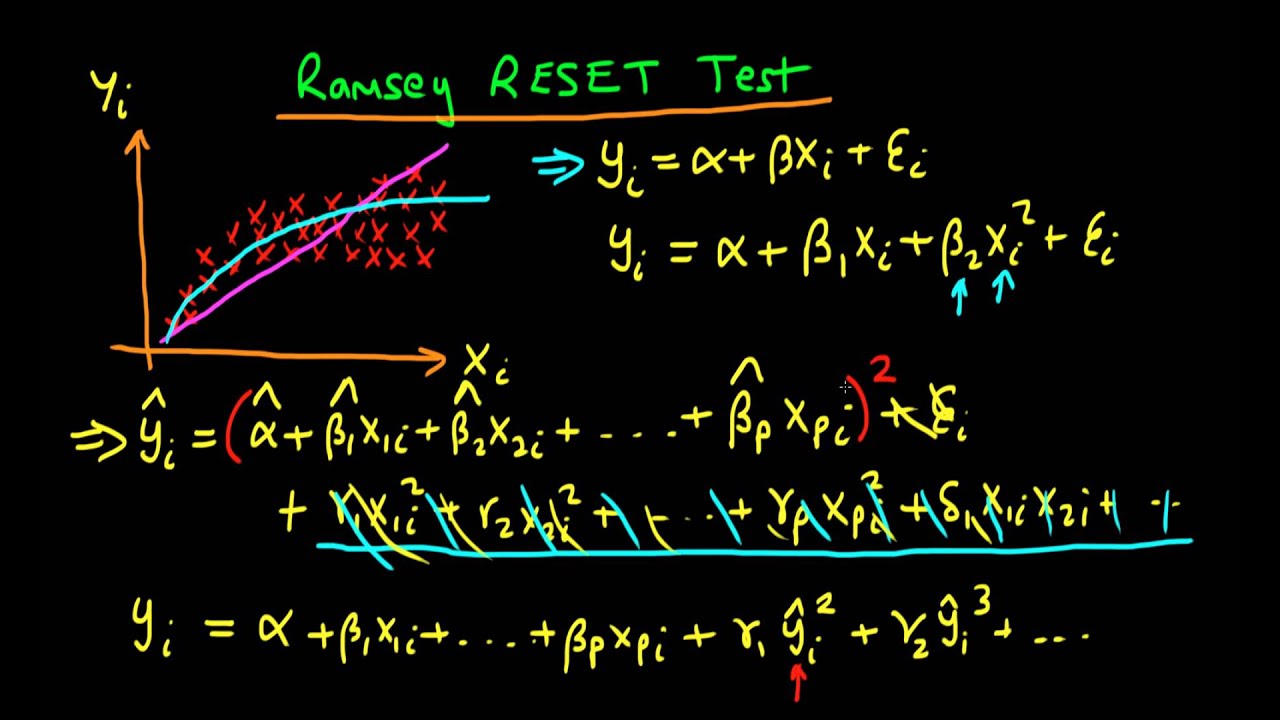 Ramsey RESET Test
Yᵢ
⇒ yᵢ = α + βxᵢ + εᵢ
yᵢ = α + β₁xᵢ + β₂xᵢ² + εᵢ
xᵢ
⇒ ŷᵢ = (α̂ + β̂₁x₁ᵢ + β̂₂x₂ᵢ + ... + β̂ₚxₚᵢ)² + εᵢ
+ r₁x₁ᵢ² + r₂x₂ᵢ² + ... + rₚxₚᵢ² + δ₁x₁ᵢx₂ᵢ + +
yᵢ = α + β₁x₁ᵢ + ... + βₚxₚᵢ + r₁ŷᵢ² + r₂ŷᵢ³ + ...